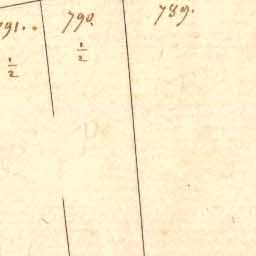 791.. 790. 789.
1/2 1/2